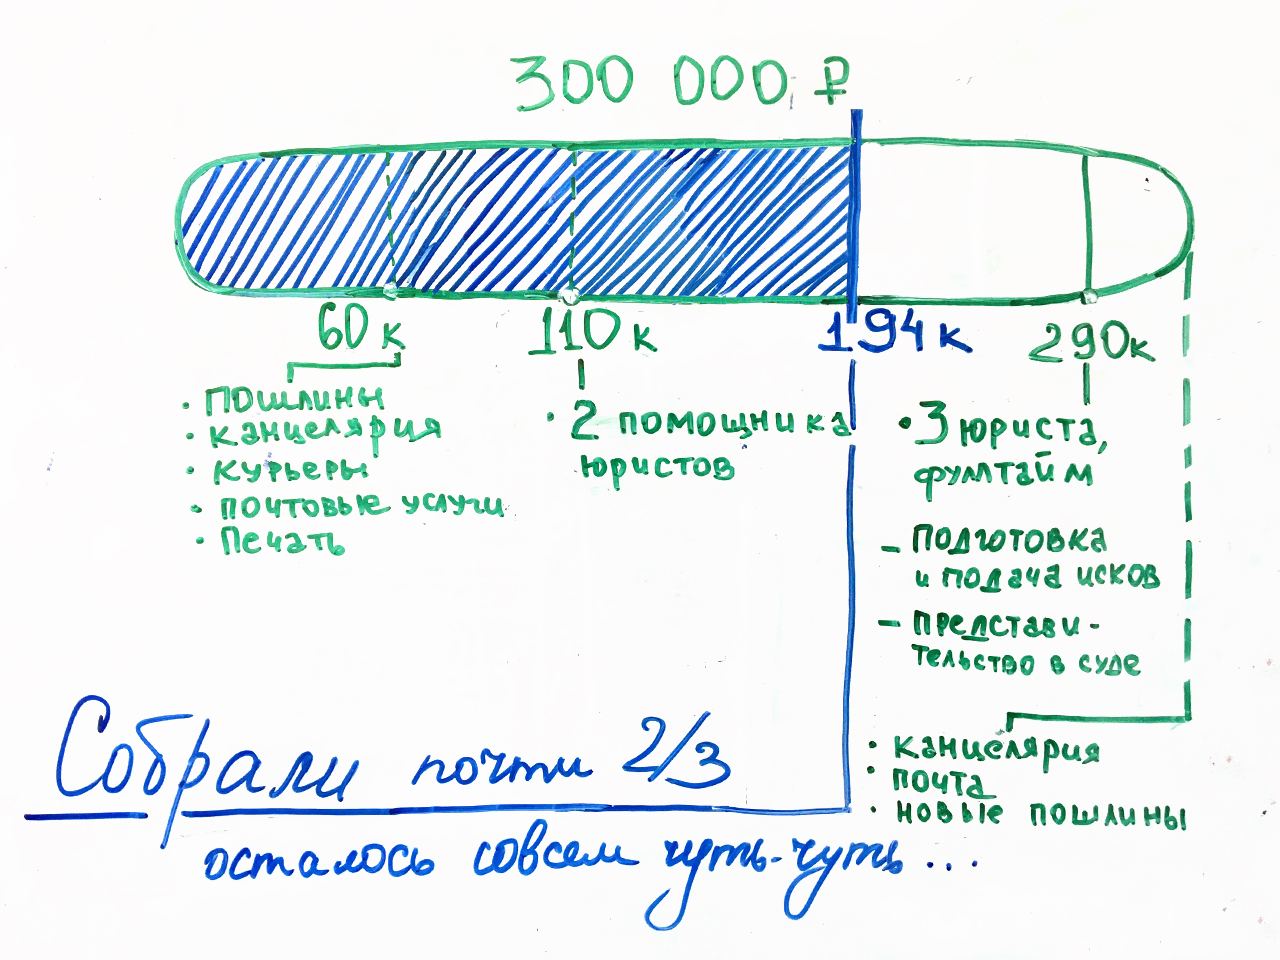 300 000 ₽
60к
110к
194к
290к
• Пошлины
• канцелярия
• курьеры
• почтовые услуги
• Печать
• 2 помощника
юристов
• 3 юриста,
фуллтайм
– подготовка
и подача исков
– представи-
тельство в суде
• канцелярия
• почта
• новые пошлины
Собрали почти 2/3
осталось совсем чуть-чуть...